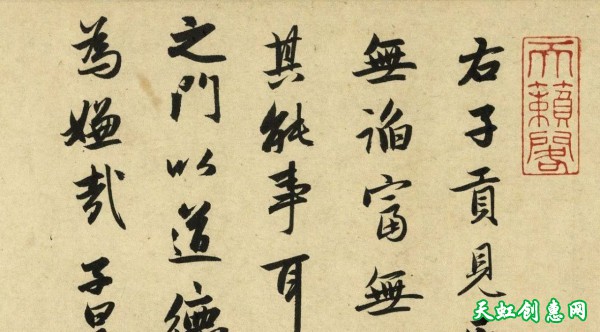 天籟閣
右子貢見
無諂富無
其能事耳
之門以道德
為嫌哉子
天虹创惠网